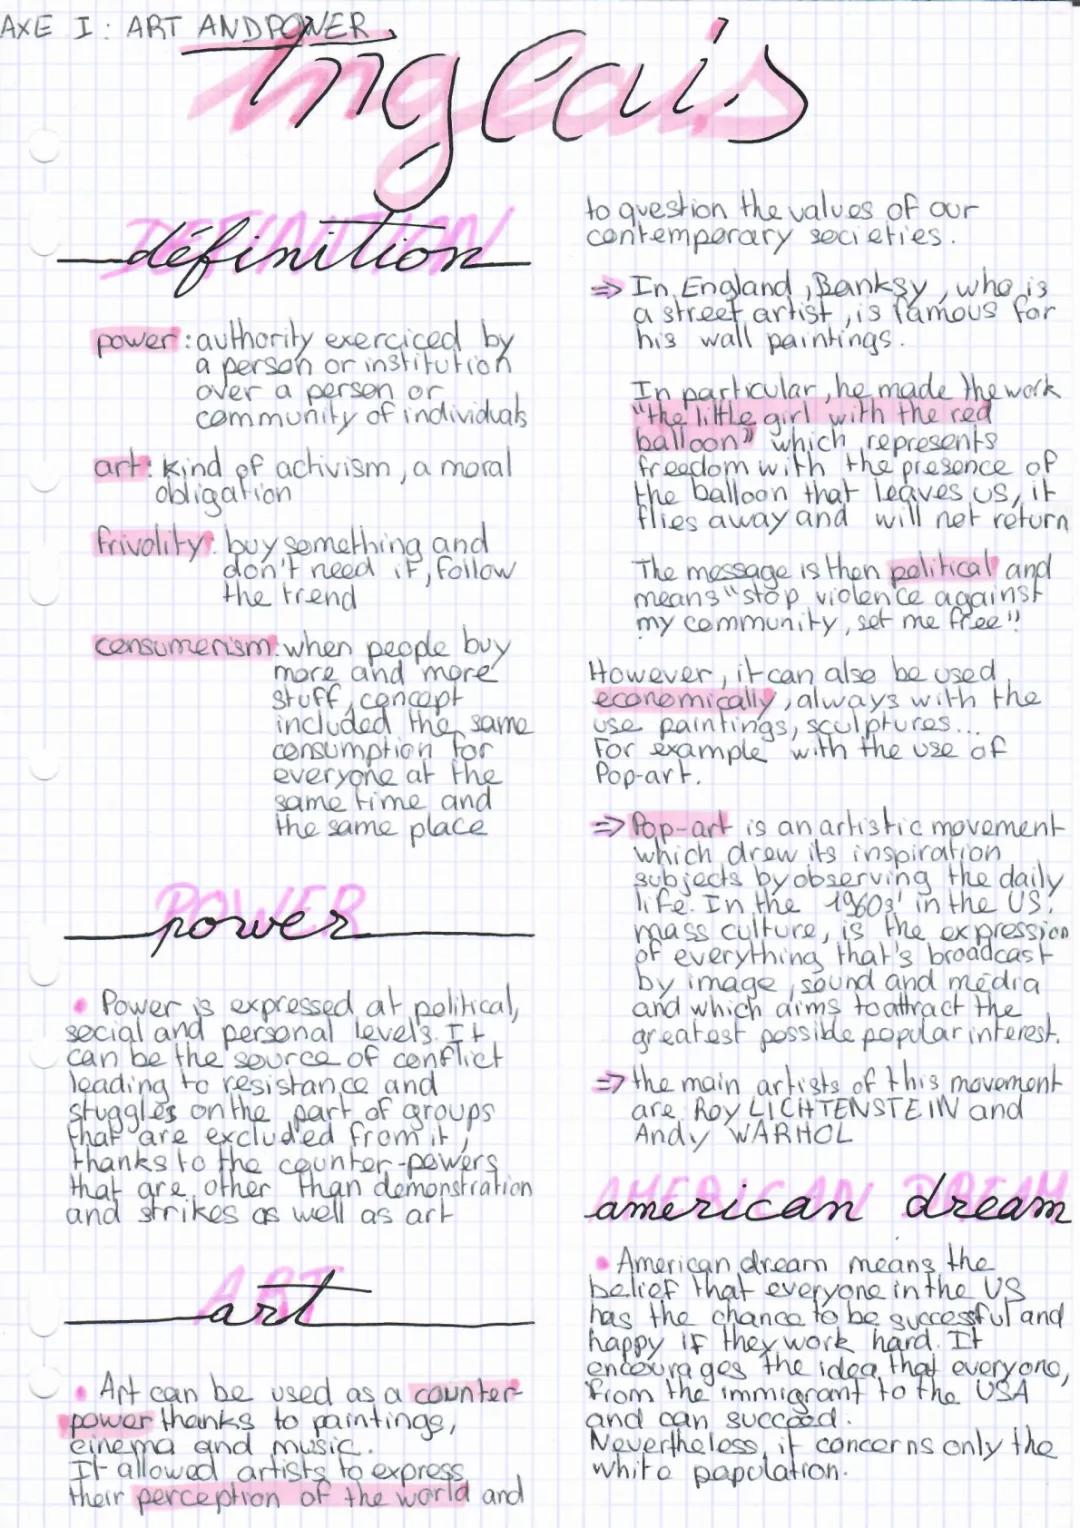 AXE I : ART AND POWER
Anglais
DEFINITION
définition
power : authority exerciced by
a person or institution
over a person or
community of individuals
art : kind of activism, a moral
obligation
frivolity : buy something and
don't need it, follow
the trend
consumerism : when people buy
more and more
stuff, concept
included the same
consumption for
everyone at the
same time and
the same place
POWER
power
• Power is expressed at political,
social and personal levels. It
can be the source of conflict
leading to resistance and
stuggles on the part of groups
that are excluded from it,
thanks to the counter-powers
that are other than demonstration
and strikes as well as art
ART
art
• Art can be used as a counter-
power thanks to paintings,
cinema and music.
It allowed artists to express
their perception of the world and
to question the values of our
contemporary societies.
⇒ In England, Banksy, who is
a street artist, is famous for
his wall paintings.
In particular, he made the work
"the little girl with the red
balloon" which represents
freedom with the presence of
the balloon that leaves us, it
flies away and will not return
The message is then political and
means "stop violence against
my community, set me free"!
However, it can also be used
economically, always with the
use paintings, sculptures...
For example with the use of
Pop-art.
⇒ Pop-art is an artistic movement
which drew its inspiration
subjects by observing the daily
life. In the 1960s' in the US.
mass culture, is the expression
of everything that's broadcast
by image, sound and média
and which aims to attract the
greatest possible popular interest.
⇒ the main artists of this movement
are Roy LICHTENSTEIN and
Andy WARHOL
AMERICAN DREAM
american dream
• American dream means the
belief that everyone in the US
has the chance to be successful and
happy if they work hard. It
encourages the idea that everyone,
from the immigrant to the USA
and can succeed.
Nevertheless, it concerns only the
white papulation.